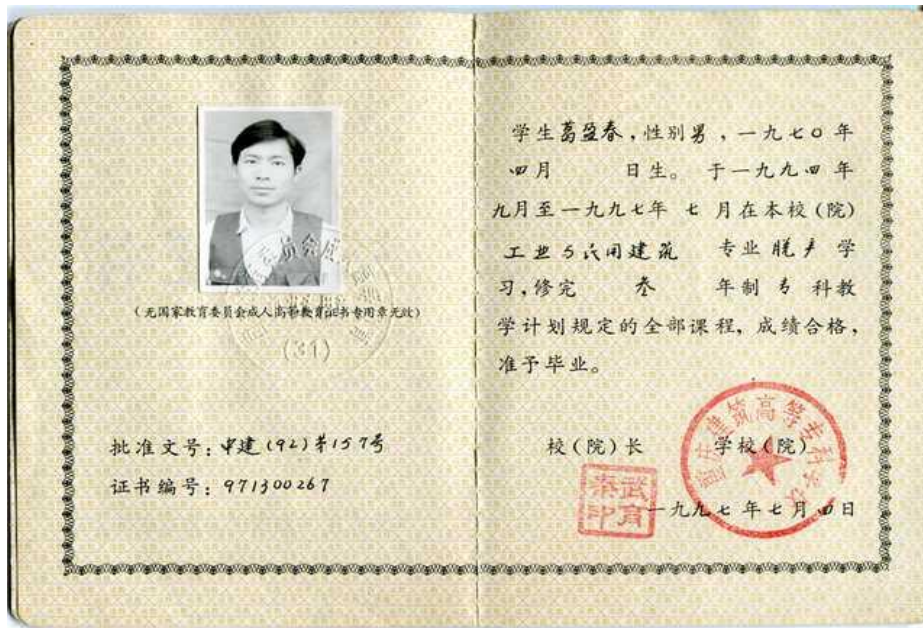 (无国家教育委员会成人高等教育证书专用章无效)
(31)
批准文号：中建(92)第157号
证书编号：971300267
学生葛盈春，性别男，一九七〇年
四月 日生。于一九九四年
九月至一九九七年 七 月在本校(院)
工业与民用建筑 专业脱产学
习，修完 叁 年制 专 科教
学计划规定的全部课程，成绩合格，
准予毕业。
校(院)长 学校(院)
一九九七年七月四日
建筑高等专科学校